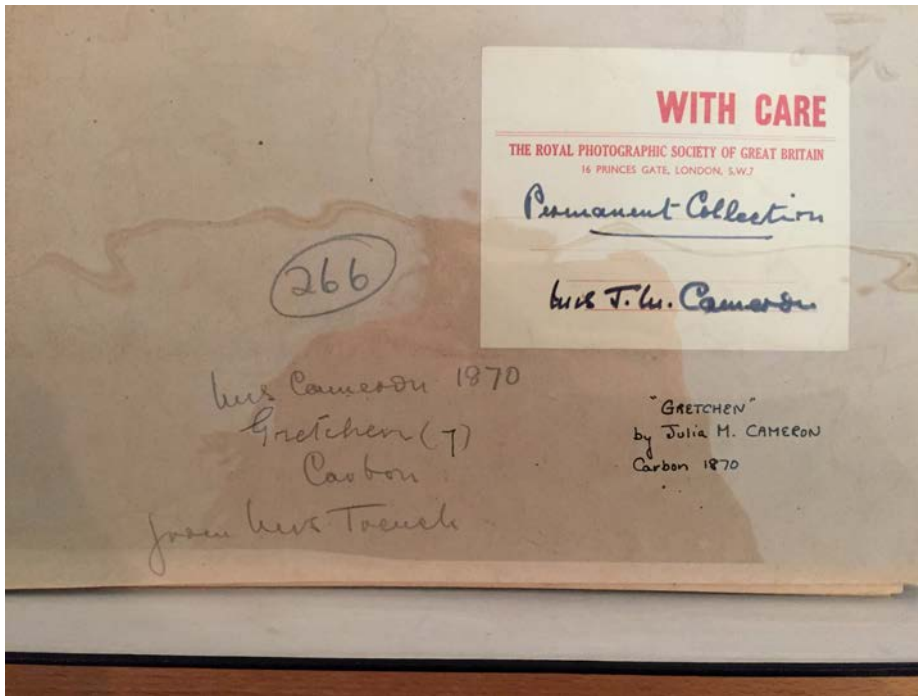 WITH CARE
THE ROYAL PHOTOGRAPHIC SOCIETY OF GREAT BRITAIN
16 PRINCES GATE, LONDON, S.W.7
Permanent Collection
Mrs J. M. Cameron
266
Mrs Cameron 1870
Gretchen (7)
Carbon
from Mrs Trench
"GRETCHEN"
by Julia M. CAMERON
Carbon 1870